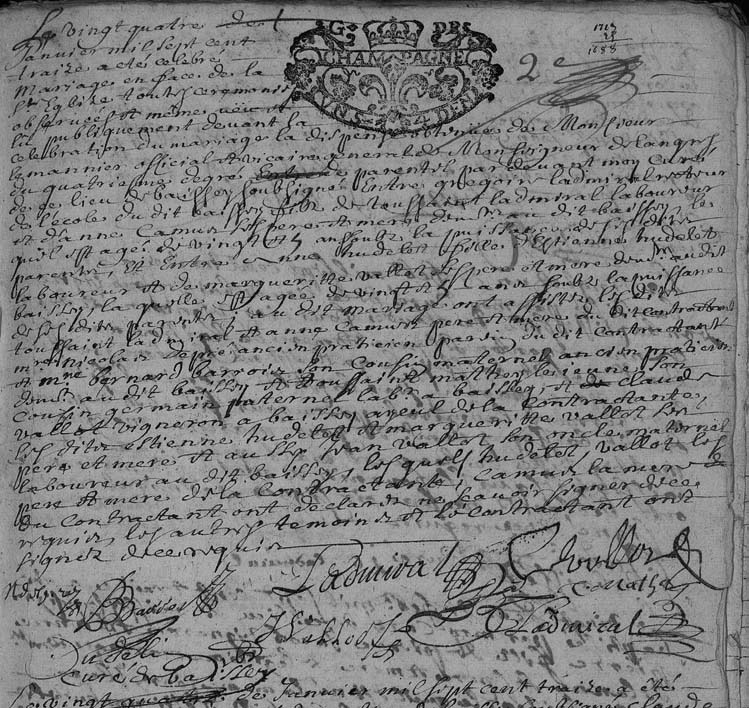 Le vingt quatre de
Janvier mil sept cent
traize a eté celebré
mariage en face de la
Ste Eglize toutes ceremonies
observées et mêmes
lu publiquement devant la
celebration du mariage la dispense obtenue de Monsieur
lemannier official et vicaire general de Monseigneur de langres
du quatriesme degré de parenté, par devant moy Curé
de ce lieu de baissey soubsigné Entre gregoire ladmiral recteur
de l'ecole du dit baissey fils de toussaint ladmiral laboureur
et d'anne Camus ses pere et mere dem^t au dit baissey, le
quil est agé de vingt ans soubz la puissance de ses dits
parents, Et Entre anne hudelot fille d'Estienne hudelot
laboureur et de margueritte vallot ses pere et mere dem^t au dit
baissey, la quelle est agée de vingt ans soubz la puissance
de ses dits parents; au dit mariage ont assisté les dits
toussaint ladmiral et anne camus pere et mere du dit contractant
m^re nicolas ancien praticien parain du dit contractant
et m^re bernard barrois son cousin maternel ancien praticien
dem^t au dit baissey et toussaint mathey le jeune son
cousin germain paternel lab^r a baissey, et de claude
vallot vigneron a baissey ayeul de la contractante,
les dits estienne hudelot et margueritte vallot ses
pere et mere et aussy jean vallot son oncle maternel
laboureur au dit baissey, les quels hudelot vallot les
pere et mere de la contractante, Camus la mere
du contractant ont declaré ne scavoir signer de ce
requis, les autres temoins et le contractant ont
signez de ce requis
Ladmiral
C Mathey
Ladmiral
curé de baissey
Le vingt quatre de Janvier mil sept cent traize a été
G^D P^R
CHAMPAGNE
VN S 4 DEN
2^e
1713
25
1688